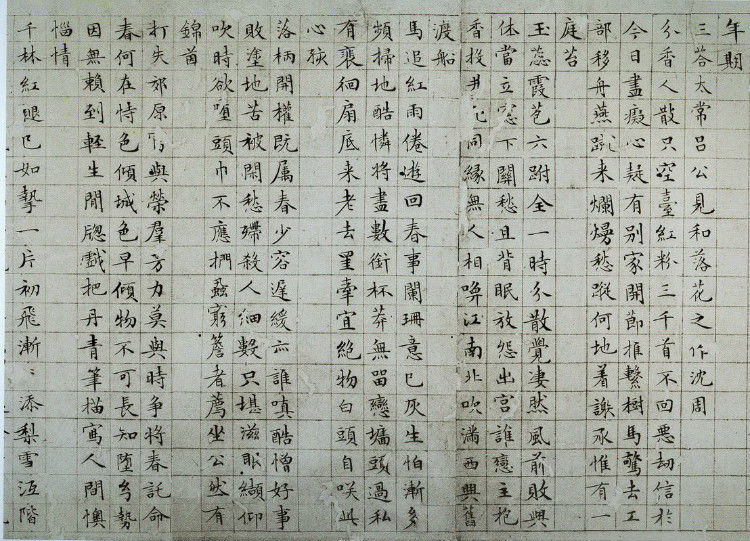 年期
三荅太常吕公見和落花之作沈周
分香人散只空臺紅粉三千首不回惡劫信於
今日盡癡心疑有别家開節推繫樹馬驚去工
部移舟燕蹴来爛熳愁蹤何地着謝承惟有一
庭苔
玉蕊霞苞六跗全一時分散覺凄然風前敗興
休當立窓下關愁且背眠放怨出宫誰戀主抱
香投井死同縁無人相喚江南北吹滿西興舊
渡船
馬追紅雨倦遊回春事闌珊意已灰生怕漸多
頻掃地酷憐將盡數銜杯莽無留戀墻頭過私
有裵徊扇底来老去罣牽宜絶物白頭自咲此
心孩
落柄開權既属春少容遲緩亦誰嗔酷憎好事
敗塗地苦被閑愁殢殺人細數只堪滋眼纈仰
吹時欲堕頭巾不應捫蝨窮簷者薦坐公然有
錦茵
打失郊原與榮羣芳力莫與時争將春託命
春何在恃色傾城色早傾物不可長知堕勢
因無賴到輕生閒牎戲把丹青筆描寫人間懊
惱情
千林紅褪已如摯一片初飛漸〻添梨雪沍階